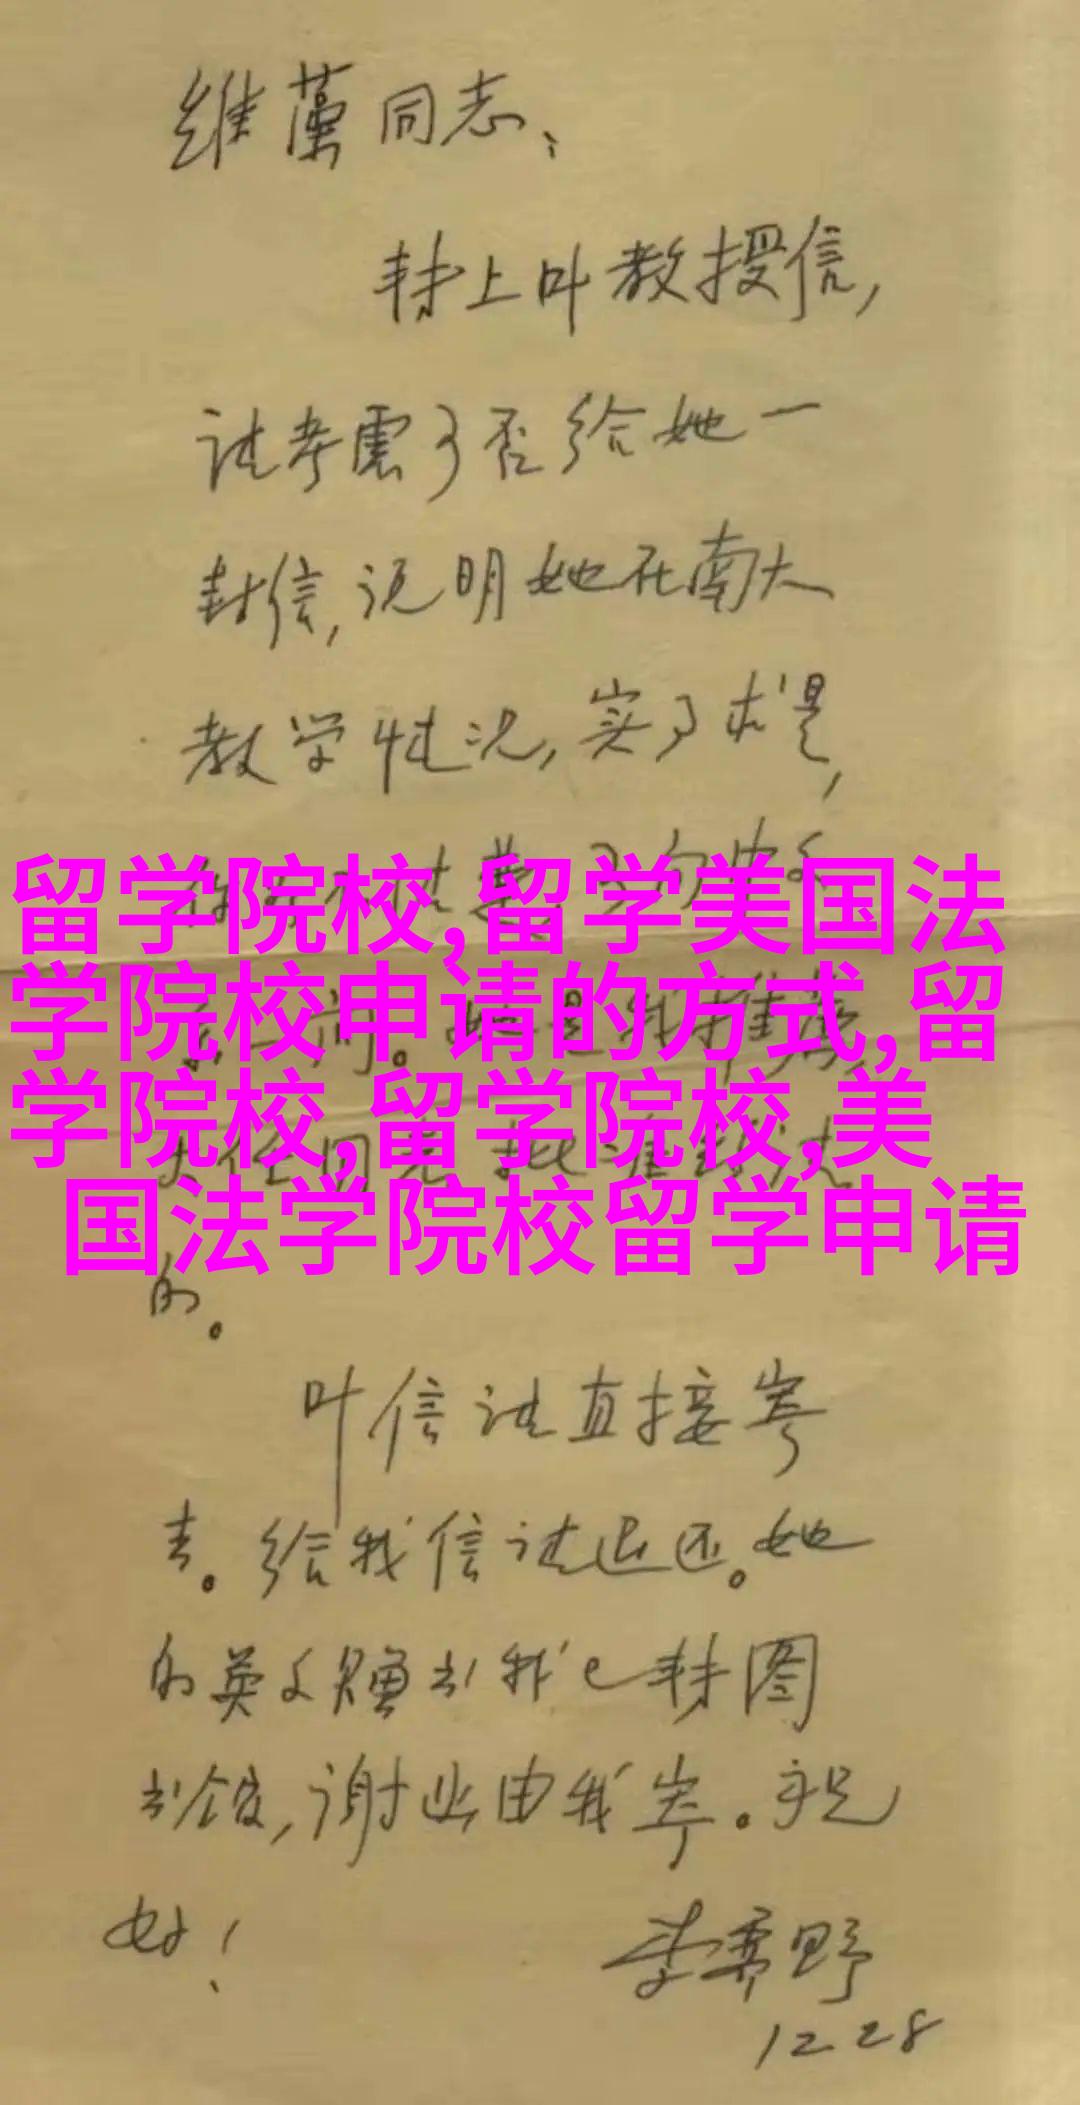 维藻同志：
转上叶教授信，
请考虑可否给她一
封信，说明她在南大
教学情况，实事求是，
留学院校,留学美国法
学院校申请的方式,留
学院校,留学院校,美
国法学院校留学申请
的。
叶信请直接寄
去。给我信请退还。她
的英文赠书我已转图
书馆，谢函由我寄。祝
好！
李霁野
12 28